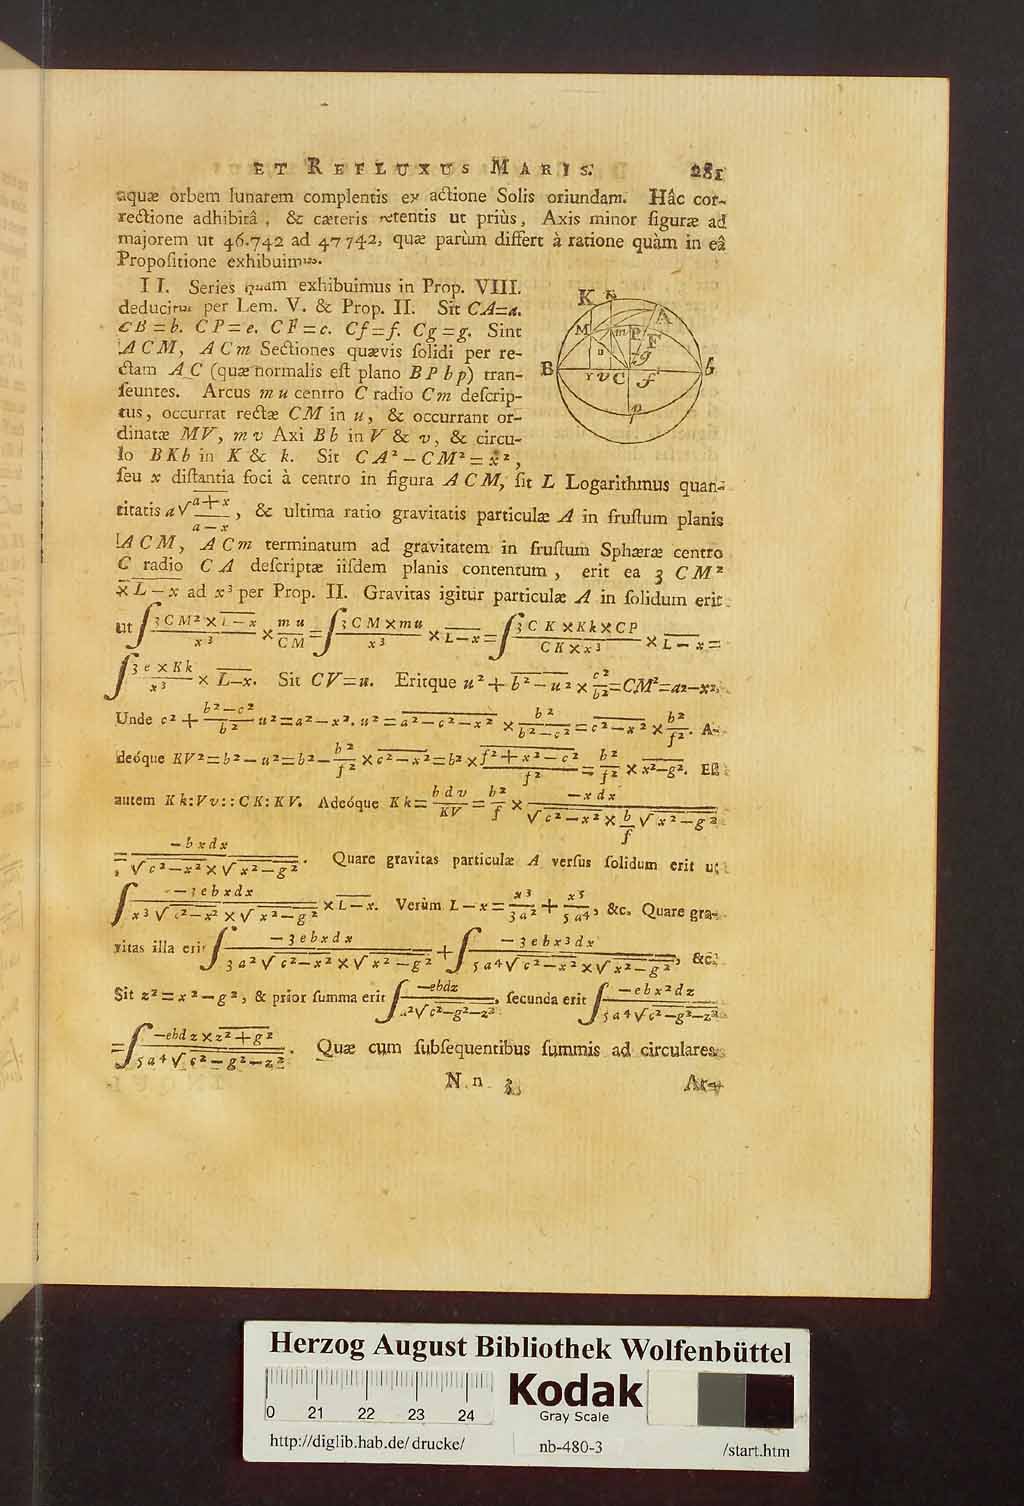 ET REFLUXUS MARIS. 281
aquæ orbem lunarem complentis ex actione Solis oriundam. Hâc cor-
rectione adhibitâ, & cæteris retentis ut priùs, Axis minor figuræ ad
majorem ut 46.742 ad 47742, quæ parùm differt à ratione quàm in eâ
Propositione exhibuimus.
II. Series quam exhibuimus in Prop. VIII.
deducitur per Lem. V. & Prop. II. Sit CA=a.
CB=b. CP=e. CF=c. Cf=f. Cg=g. Sint
ACM, ACm Sectiones quævis solidi per re-
ctam AC (quæ normalis est plano BPbp) tran-
seuntes. Arcus mu centro C radio Cm descrip-
tus, occurrat rectæ CM in u, & occurrant or-
dinatæ MV, mv Axi Bb in V & v, & circu-
lo BKb in K & k. Sit CA²−CM²=x²,
seu x distantia foci à centro in figura ACM, sit L Logarithmus quan-
titatis a√(a+x)/(a−x), & ultima ratio gravitatis particulæ A in frustum planis
ACM, ACm terminatum ad gravitatem in frustum Sphæræ centro
C radio CA descriptæ iisdem planis contentum, erit ea 3 CM²
×L−x ad x³ per Prop. II. Gravitas igitur particulæ A in solidum erit
ut ∫ 3CM²×L−x / x³ × mu/CM = ∫ 3CM×mu / x³ × L−x = ∫ 3CK×Kk×CP / CK×x³ × L−x =
∫ 3e×Kk / x³ × L−x. Sit CV=u. Eritque u²+b²−u²×c²/b²=CM²=a²−x².
Unde c²+(b²−c²)/b² u²=a²−x². u²=a²−c²−x²×b²/(b²−c²)=c²−x²×b²/f². A-
deóque KV²=b²−u²=b²−b²/f²×c²−x²=b²×(f²+x²−c²)/f²=b²/f²×x²−g². Est
autem Kk:Vv::CK:KV. Adeóque Kk=bdv/KV=b²/f×−xdx/(√c²−x²×b/f√x²−g²)
=−bxdx/(√c²−x²×√x²−g²). Quare gravitas particulæ A versus solidum erit ut
∫ −3ebxdx/(x³√c²−x²×√x²−g²)×L−x. Verùm L−x=x³/3a²+x⁵/5a⁴, &c. Quare gra-
vitas illa erit ∫ −3ebxdx/(3a²√c²−x²×√x²−g²)+∫ −3ebx³dx/(5a⁴√c²−x²×√x²−g²), &c.
Sit z²=x²−g², & prior summa erit ∫ −ebdz/(a²√c²−g²−z²), secunda erit ∫ −ebx²dz/(5a⁴√c²−g²−z²)
=∫ −ebdz×z²+g²/(5a⁴√c²−g²−z²). Quæ cum subsequentibus summis ad circulares
Nn 3 Ar-
K k A M m P F u Z g B V v C f b p
Herzog August Bibliothek Wolfenbüttel
Kodak
Gray Scale
0 21 22 23 24
http://diglib.hab.de/drucke/ nb-480-3 /start.htm